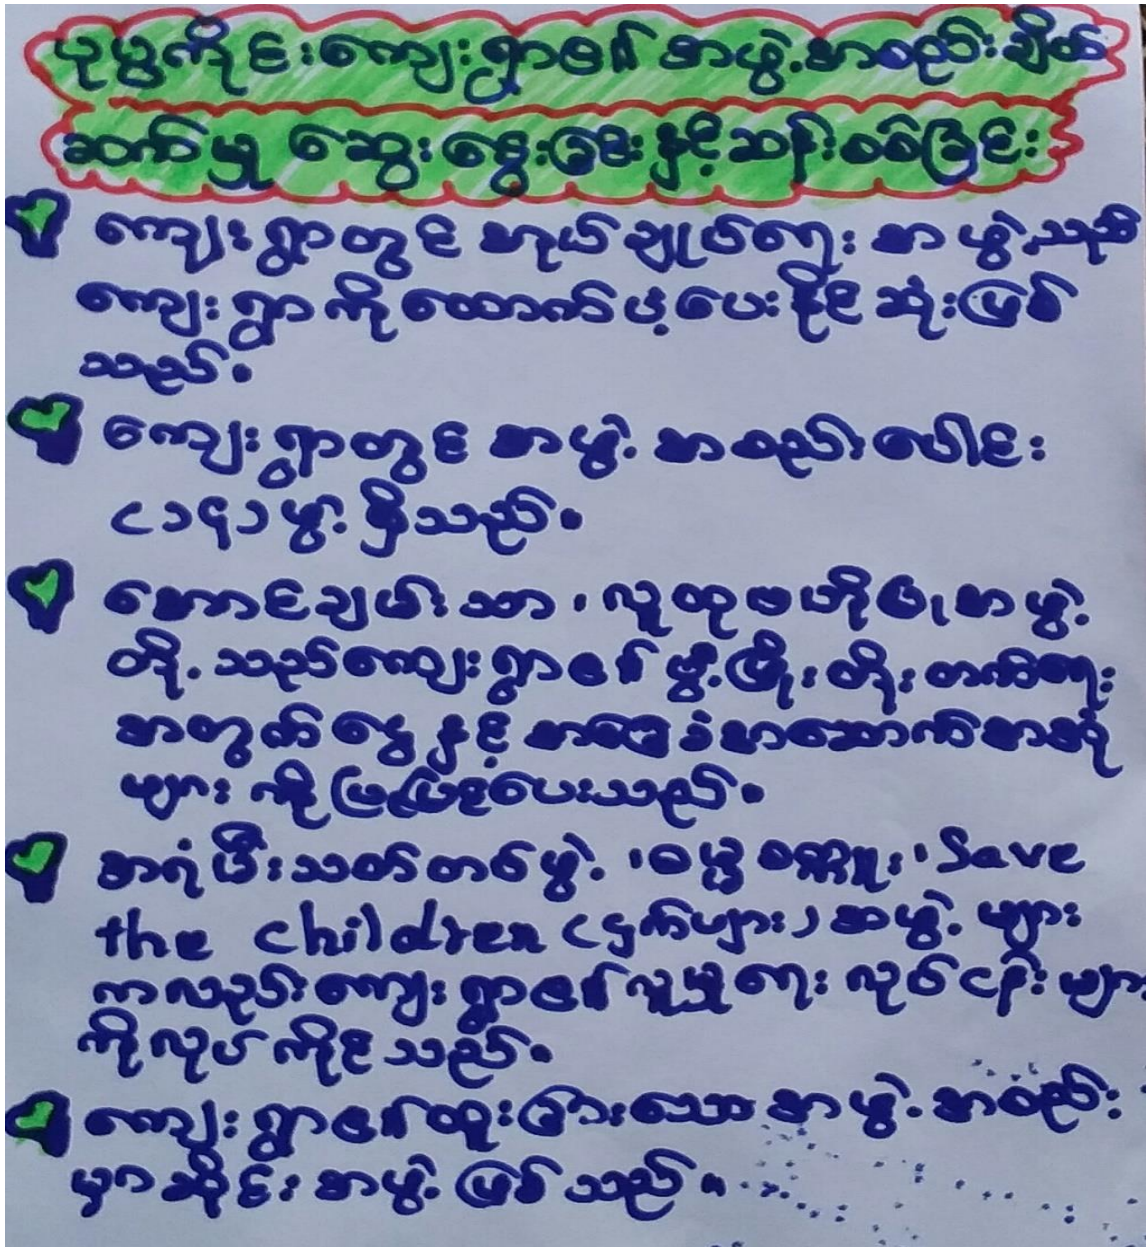 ပုပ္ပကိုင်းကျေးရွာ၏ အဖွဲ့အစည်းချိတ်
ဆက်မှု ဆွေးနွေးခြင်းနှင့်ဆန်းစစ်ခြင်း
ကျေးရွာတွင် အုပ်ချုပ်ရေး အဖွဲ့သည်
ကျေးရွာကိုထောက်ပံ့ပေးနိုင်ဆုံးဖြစ်
သည်။
ကျေးရွာတွင် အဖွဲ့အစည်းပေါင်း
(၁၄)ဖွဲ့ ရှိသည်။
အောင်ချမ်းသာ၊ လူထုဗဟိုပြုအဖွဲ့
တို့သည်ကျေးရွာ၏ ဖွံ့ဖြိုးတိုးတက်ရေး
အတွက် ငွေနှင့် အခြေခံအဆောက်အအုံ
များ ကိုဖြည့်ပေးသည်။
အရံမီးသတ်တပ်ဖွဲ့၊ Save
the children (ငှက်ဖျား) အဖွဲ့ များ
ကလည်းကျေးရွာ၏လူမှုရေး လုပ်ငန်းများ
ကိုလုပ်ကိုင်သည်။
ကျေးရွာ၏ထူးခြားသောအဖွဲ့အစည်း
မှာဆိုင်းအဖွဲ့ ဖြစ်သည်။